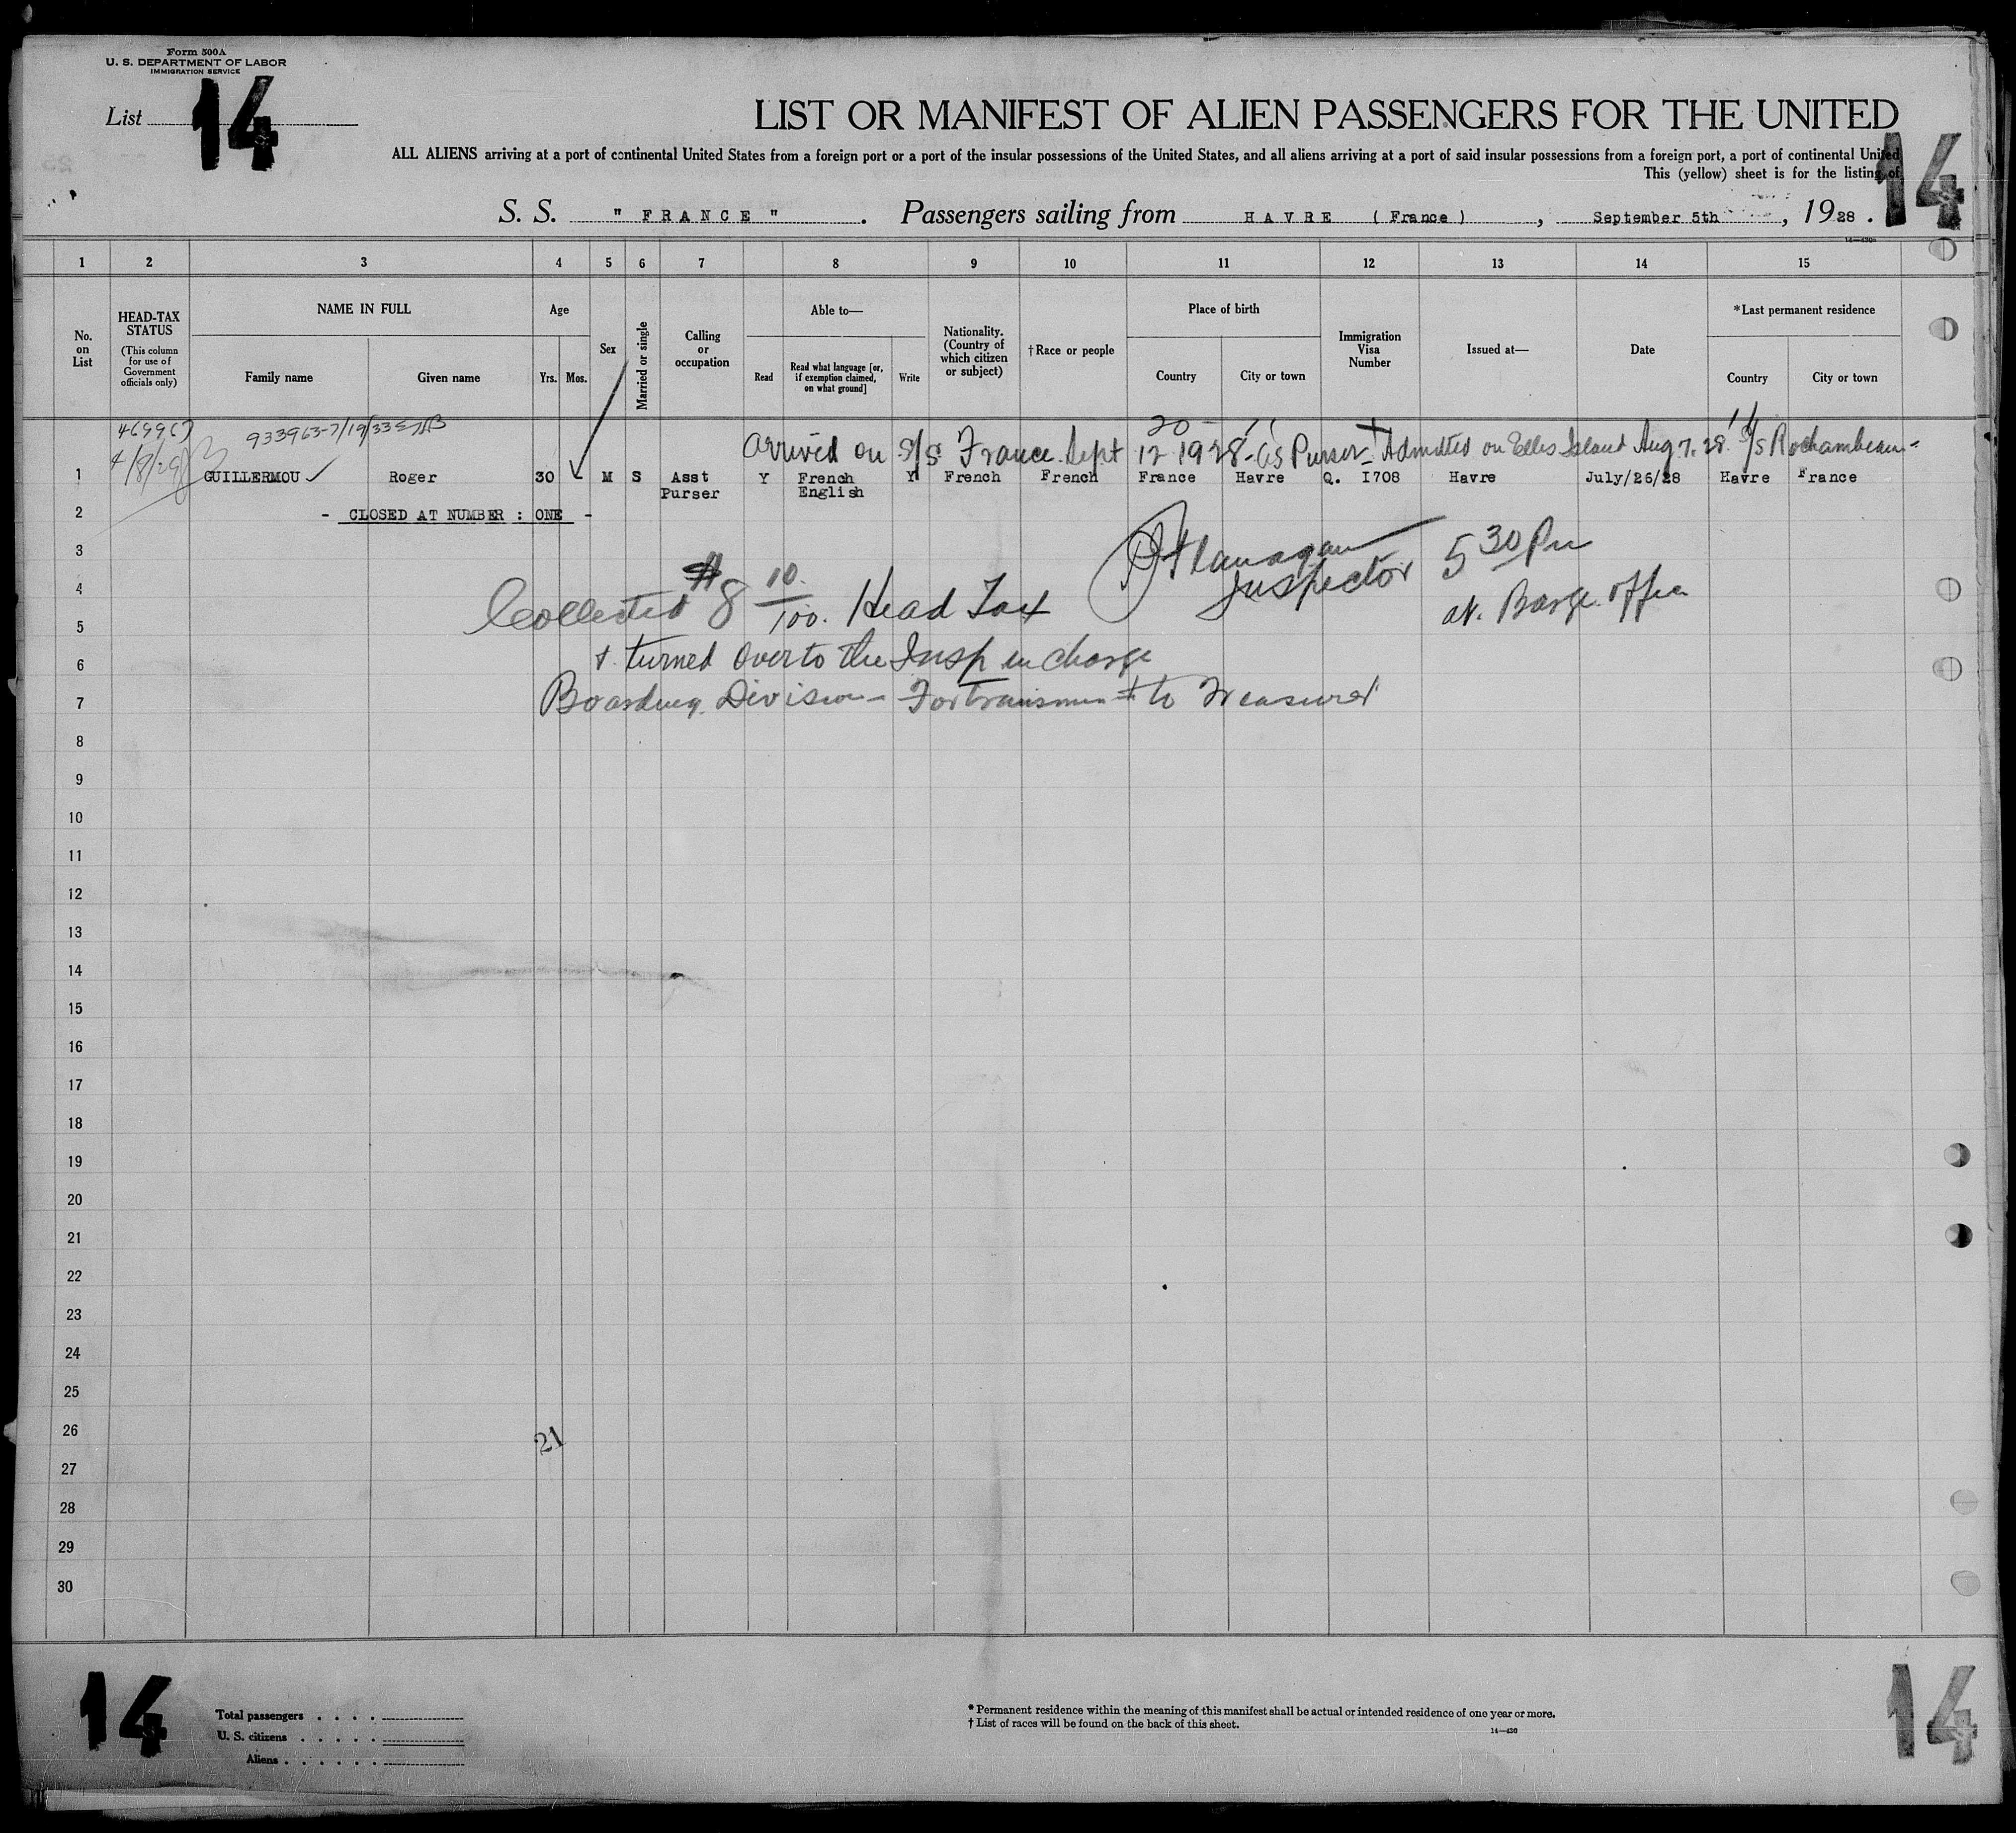 Form 500A
U. S. DEPARTMENT OF LABOR
IMMIGRATION SERVICE
List 14
LIST OR MANIFEST OF ALIEN PASSENGERS FOR THE UNITED
ALL ALIENS arriving at a port of continental United States from a foreign port or a port of the insular possessions of the United States, and all aliens arriving at a port of said insular possessions from a foreign port, a port of continental United
This (yellow) sheet is for the listing of
14
S. S. " FRANCE ". Passengers sailing from HAVRE (France), September 5th, 1928.
14-430
1 2 3 4 5 6 7 8 9 10 11 12 13 14 15
No. on List
HEAD-TAX STATUS (This column for use of Government officials only)
NAME IN FULL
Family name Given name
Age
Yrs. Mos.
Sex
Married or single
Calling or occupation
Able to—
Read
Read what language [or, if exemption claimed, on what ground]
Write
Nationality. (Country of which citizen or subject)
†Race or people
Place of birth
Country City or town
Immigration Visa Number
Issued at—
Date
*Last permanent residence
Country City or town
933963-7/19/33
4/8/29
20
Arrived on S/S France Sept 12 1928 - as Purser - Admitted on Ellis Island Aug 7. 28 S/S Rochambeau -
1 GUILLERMOU ✓ Roger 30 M S Asst Purser Y French English Y French French France Havre Q. I708 Havre July/26/28 Havre France
2 - CLOSED AT NUMBER : ONE -
3
4
5
6
7
Flanagan
Inspector
5 30 Pm
at. Barge office
Collected $8 10/100. Head Tax
+ turned over to the Insp in charge
Boarding Division - For transmit to Treasurer
8
9
10
11
12
13
14
15
16
17
18
19
20
21
22
23
24
25
26
21
27
28
29
30
14
Total passengers . . . .
U. S. citizens . . . . .
Aliens . . . . . .
* Permanent residence within the meaning of this manifest shall be actual or intended residence of one year or more.
† List of races will be found on the back of this sheet.
14-430
14